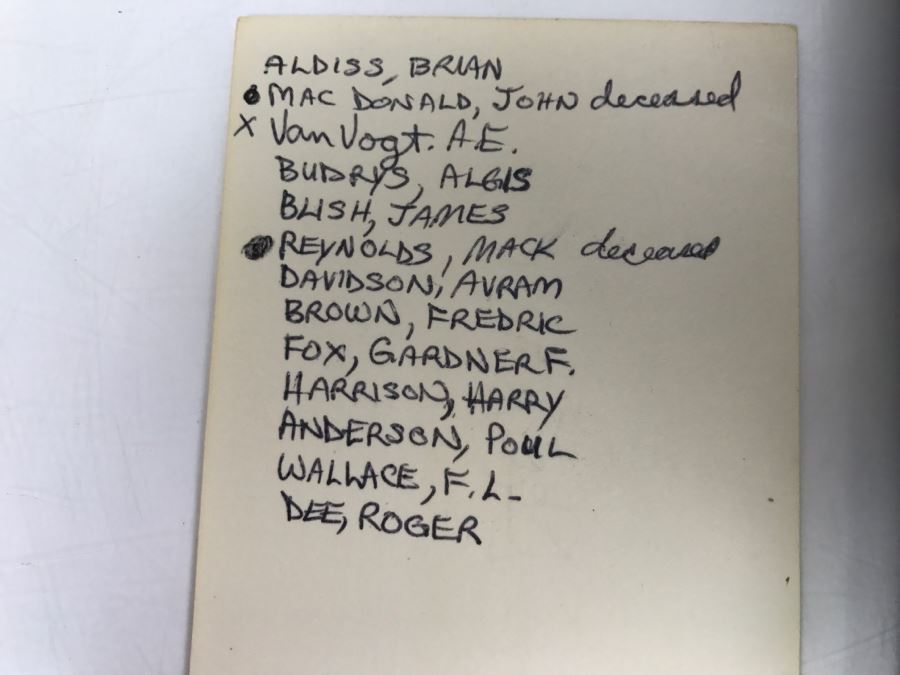 ALDISS, BRIAN
MAC DONALD, JOHN deceased
X Van Vogt. A.E.
BUDRYS, ALGIS
BLISH, JAMES
REYNOLDS, MACK deceased
DAVIDSON, AVRAM
BROWN, FREDRIC
FOX, GARDNER F.
HARRISON, HARRY
ANDERSON, POUL
WALLACE, F.L.
DEE, ROGER